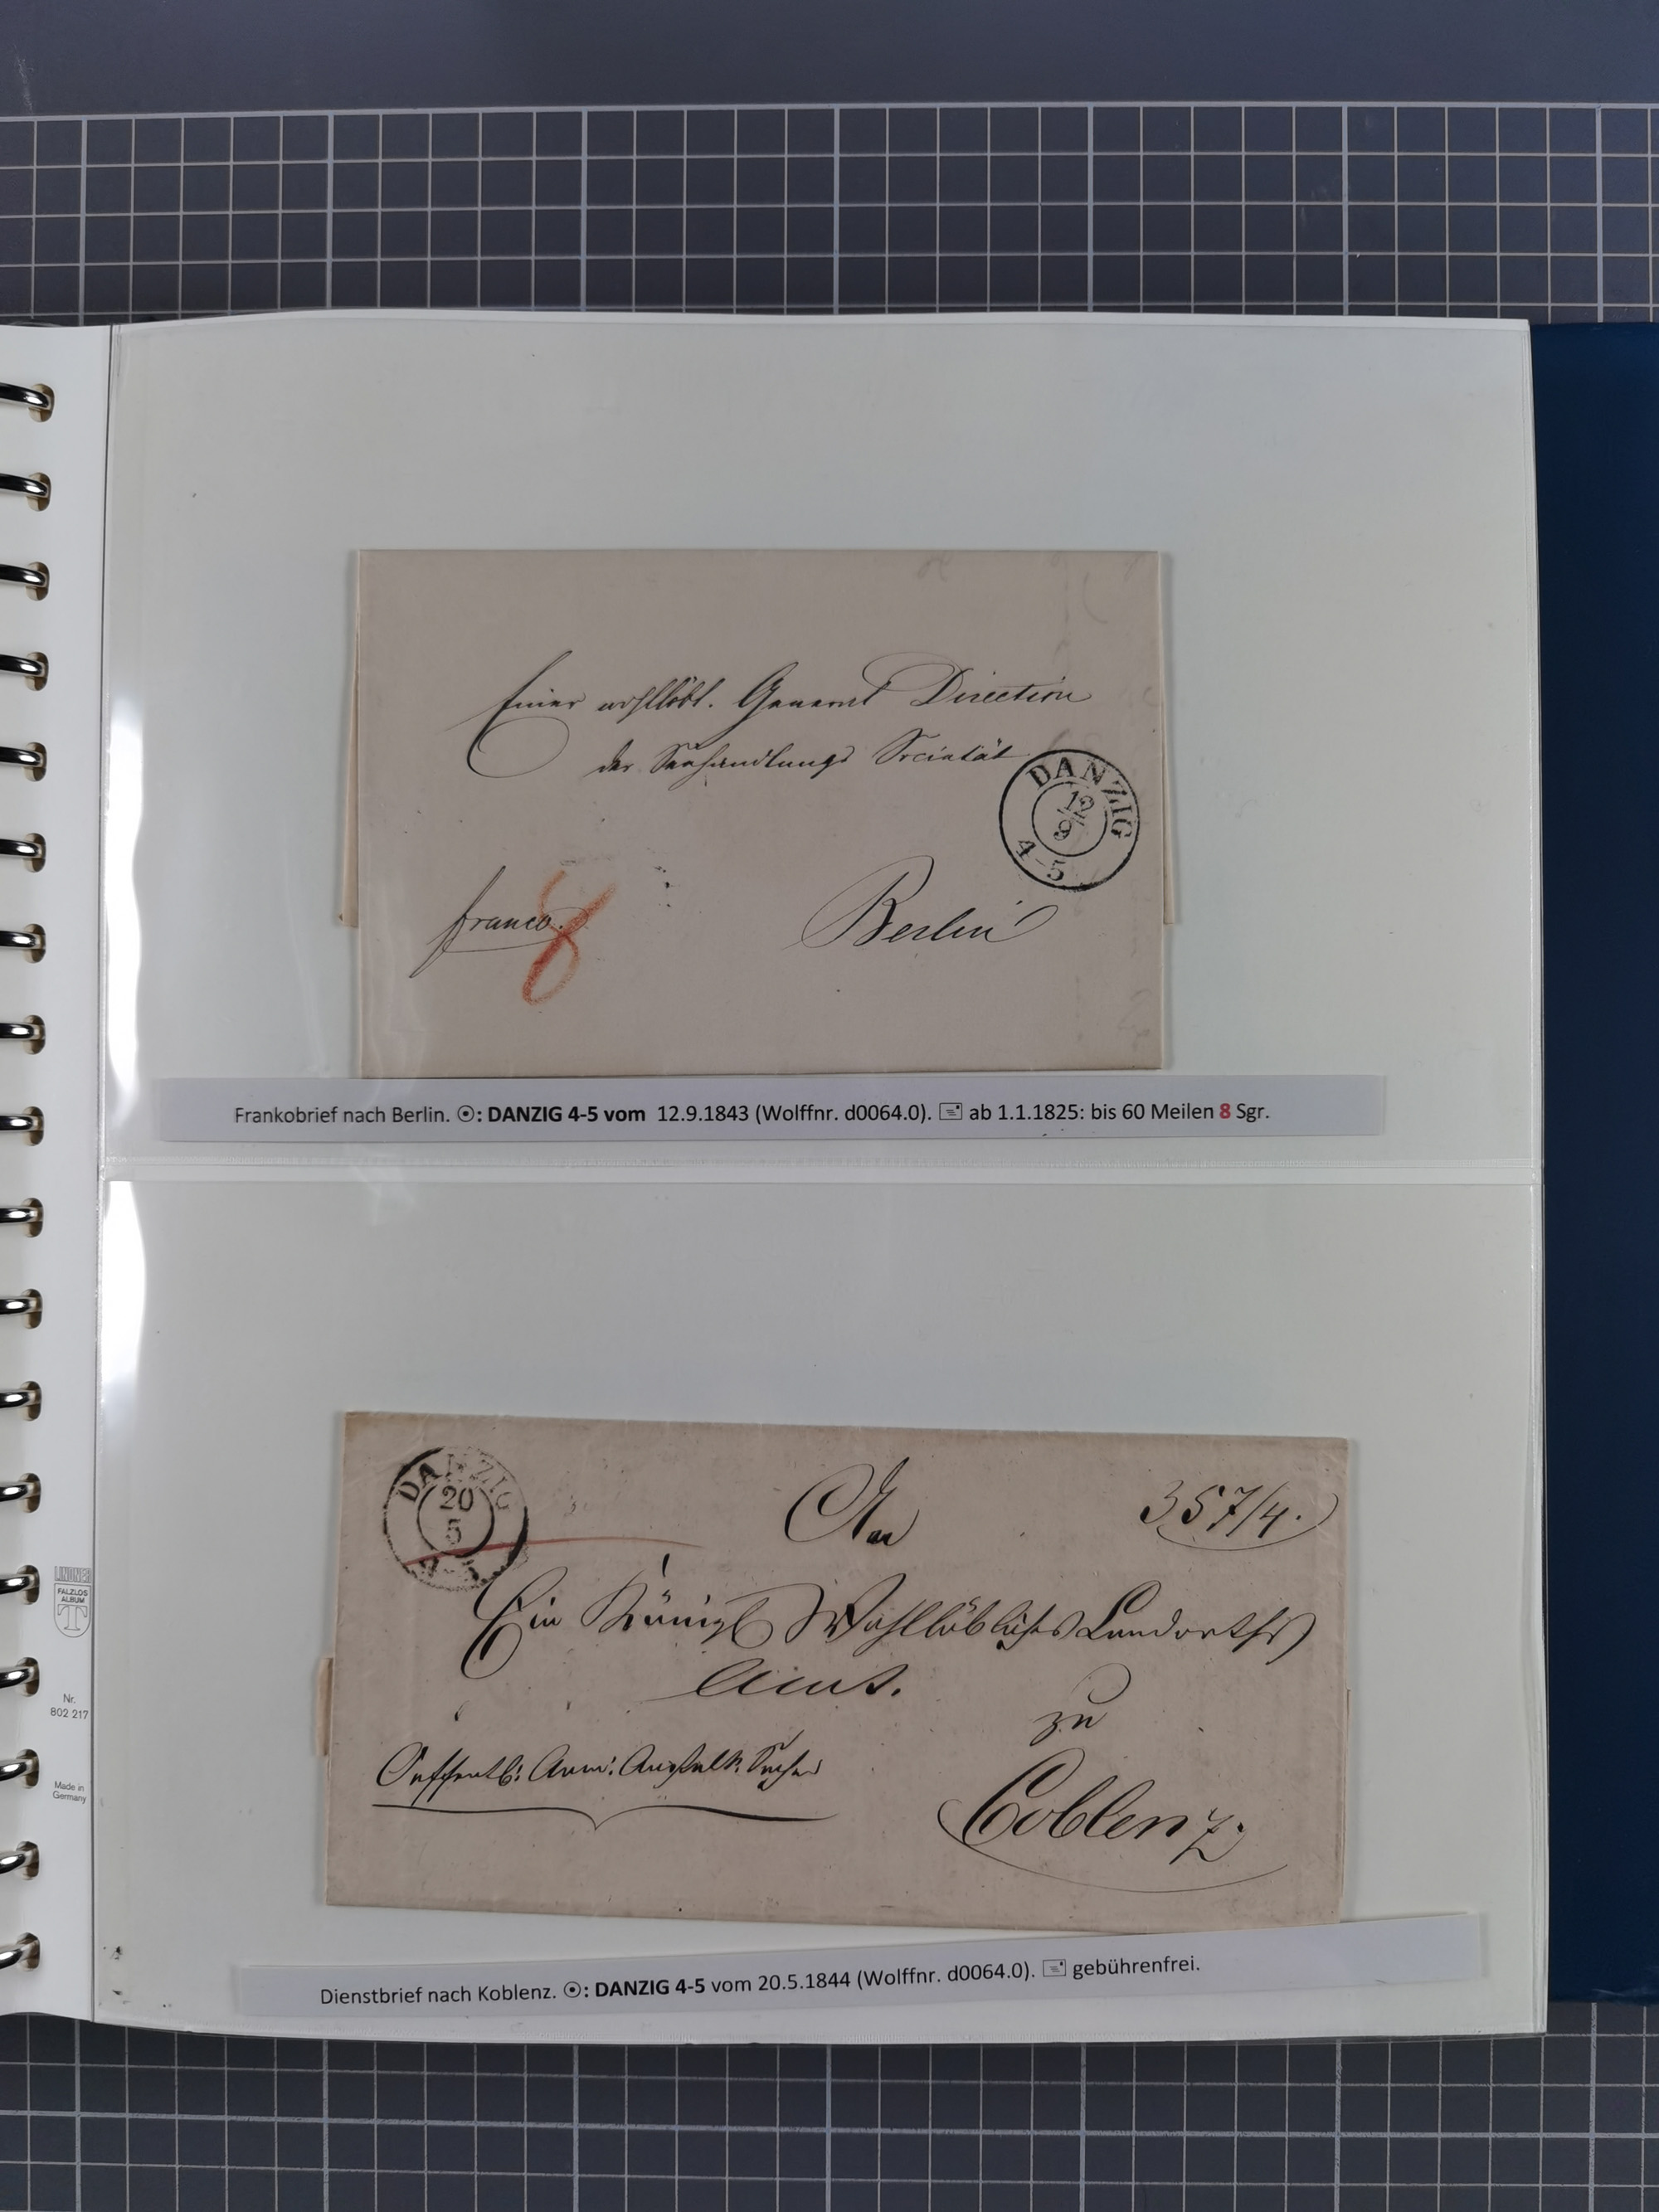 Einer wohllöbl. General Direction
der Seehandlungs Societät
DANZIG
12
9
4-5
franco.
8
Berlin
Frankobrief nach Berlin. ☉: DANZIG 4-5 vom 12.9.1843 (Wolffnr. d0064.0). 🖃 ab 1.1.1825: bis 60 Meilen 8 Sgr.
DANZIG
20
5
4-5
An
357/4.
Ein Königl Wohllöbliches Landraths
Amt.
zu
Oeffentl: Arm: Anstalts. Sache
Coblenz.
Dienstbrief nach Koblenz. ☉: DANZIG 4-5 vom 20.5.1844 (Wolffnr. d0064.0). 🖃 gebührenfrei.
LINDNER
FALZLOS
ALBUM
T
Nr.
802 217
Made in
Germany